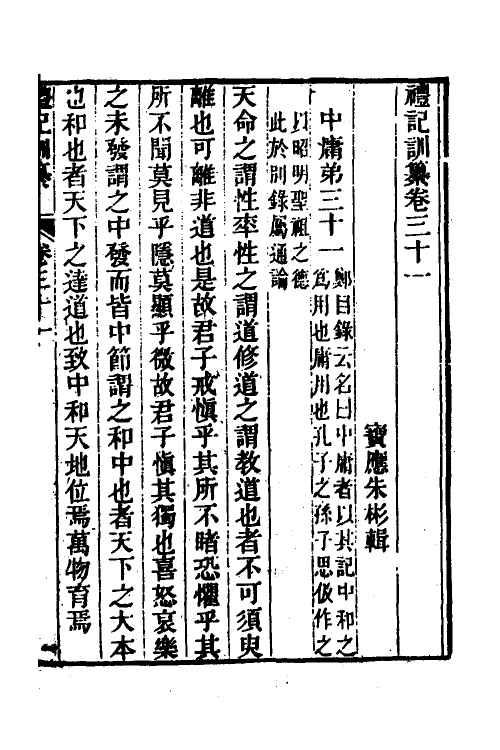 禮記訓纂卷三十一
寶應朱彬輯
中庸弟三十一 鄭目錄云名曰中庸者以其記中和之
爲用也庸用也孔子之孫子思伋作之
以昭明聖祖之德
此於別錄屬通論
天命之謂性率性之謂道修道之謂教道也者不可須臾
離也可離非道也是故君子戒愼乎其所不睹恐懼乎其
所不聞莫見乎隱莫顯乎微故君子愼其獨也喜怒哀樂
之未發謂之中發而皆中節謂之和中也者天下之大本
也和也者天下之達道也致中和天地位焉萬物育焉
禮記訓纂 卷三十一